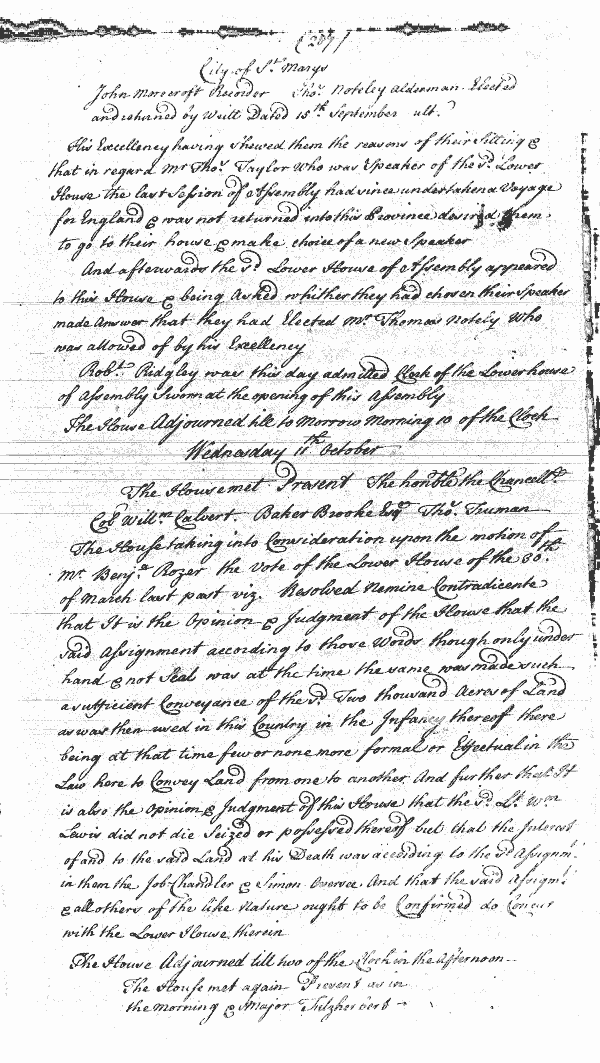 (267)
City of St Marys
John Morecroft Recorder Tho: Noteley Alderman Elected
and returned by Writt Dated 15th September ult.
His Excellency having shewed them the reasons of their Sitting &
that in regard Mr Tho: Taylor Who was Speaker of the sd. Lower
House the last Session of Assembly had since undertaken a Voyage
for England & was not returned into this Province desired them
to go to their house & make choice of a new Speaker
And afterwards the sd. Lower House of Assembly appeared
to this House & being Asked whither they had chosen their Speaker
made Answer that they had Elected Mr. Thomas Notely Who
was allowed of by his Excellency
Robt. Ridgley was this day admitted Clerk of the Lower house
of Assembly Sworn at the opening of this Assembly
The House Adjourned till to Morrow Morning 10 of the Clock
Wednesday 11th October
The House met Present The honble. the Chancellr.
Col. Willm Calvert. Baker Brooke Esqr Tho: Truman
The House taking into Consideration upon the motion of
Mr. Benja. Rozer the vote of the Lower House of the 30th
of March last past viz. Resolved Nemine Contradicente
that It is the Opinion & Judgment of the House that the
said Assignment according to those Words though only under
hand & not Seal was at the time the same was made such
a sufficient Conveyance of the sd. Two thousand Acres of Land
as was then used in this Country in the Infancy thereof there
being at that time few or none more formal or Effectual in the
Law here to Convey Land from one to another. And further that It
is also the Opinion & Judgment of this House that the sd. Lt. Wm
Lewis did not die Seized or possessed thereof but that the Interest
of and to the said Land at his Death was according to the sd Assignmt.
in them the Job Chandler & Simon Oversee And that the said Assignmt.
& all others of the like Nature ought to be Confirmed do Concur
with the Lower House therein
The House Adjourned till two of the Clock in the Afternoon
The House met again Present as in
the Morning & Major Fitzherbert